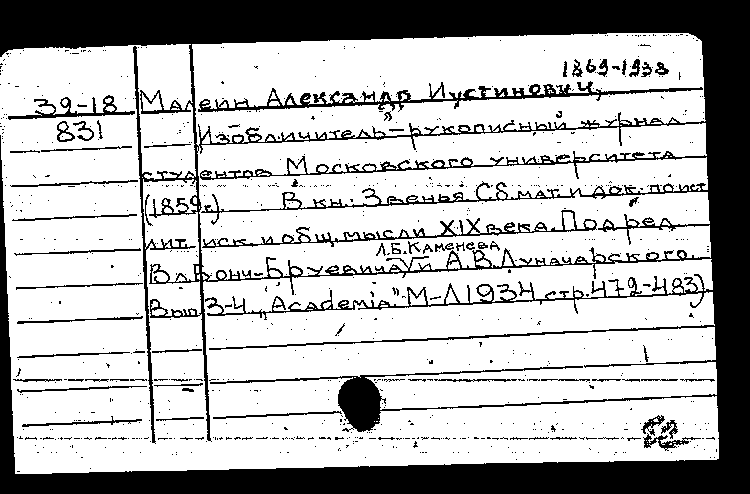 1869-1938
39-18 Малеин, Александр Иустинович,
831 „Изобличитель"–рукописный журнал
студентов Московского университета
(1859г.). В кн.: Звенья. Сб. мат. и док. по ист.
лит. иск. и общ. мысли XIX века. Под ред.
Л.Б. Каменева
Вл. Бонч-Бруевича и А.В. Луначарского.
Вып. 3-4 „Academia." М-Л 1934, стр. 472-483).